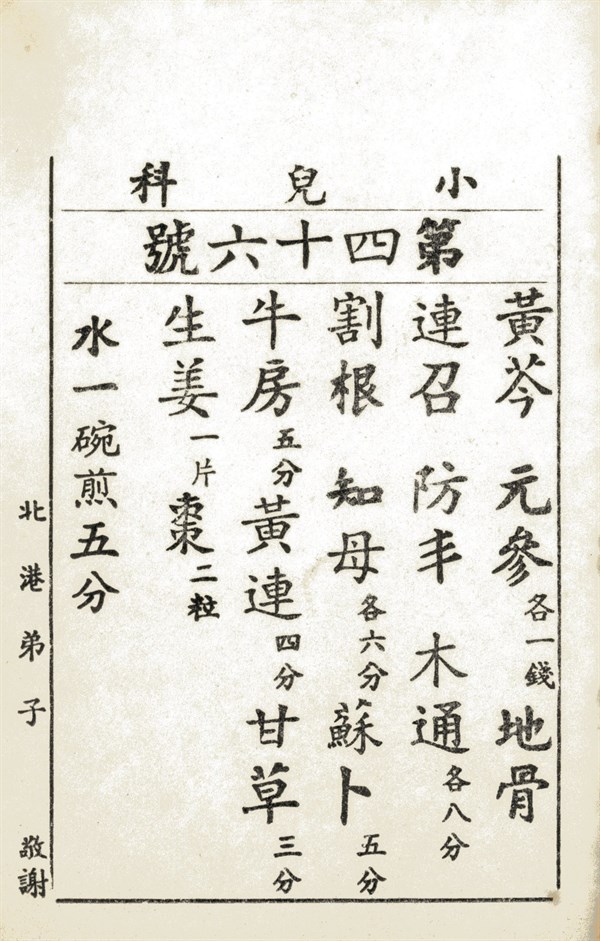 小兒科
第四十六號
黃芩 元參各一錢 地骨
連召 防丰 木通各八分
割根 知母各六分 蘇卜五分
牛房五分 黃連四分 甘草三分
生姜一片 棗二粒
水一碗煎五分
北港弟子 敬謝